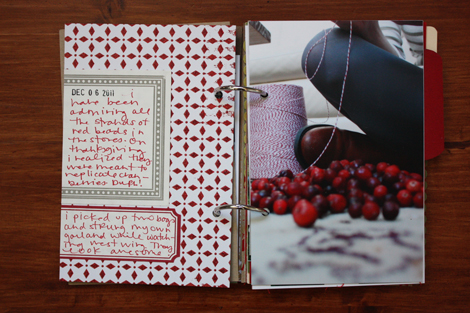 DEC 06 2011 i
have been
admiring all
the strands of
red beads in
the stores. On
thanksgiving
i realized they
were meant to
replicate cran
berries. Duh!
i picked up two bags
and strung my own
garland while watch-
ing west wing. They
look awesome.